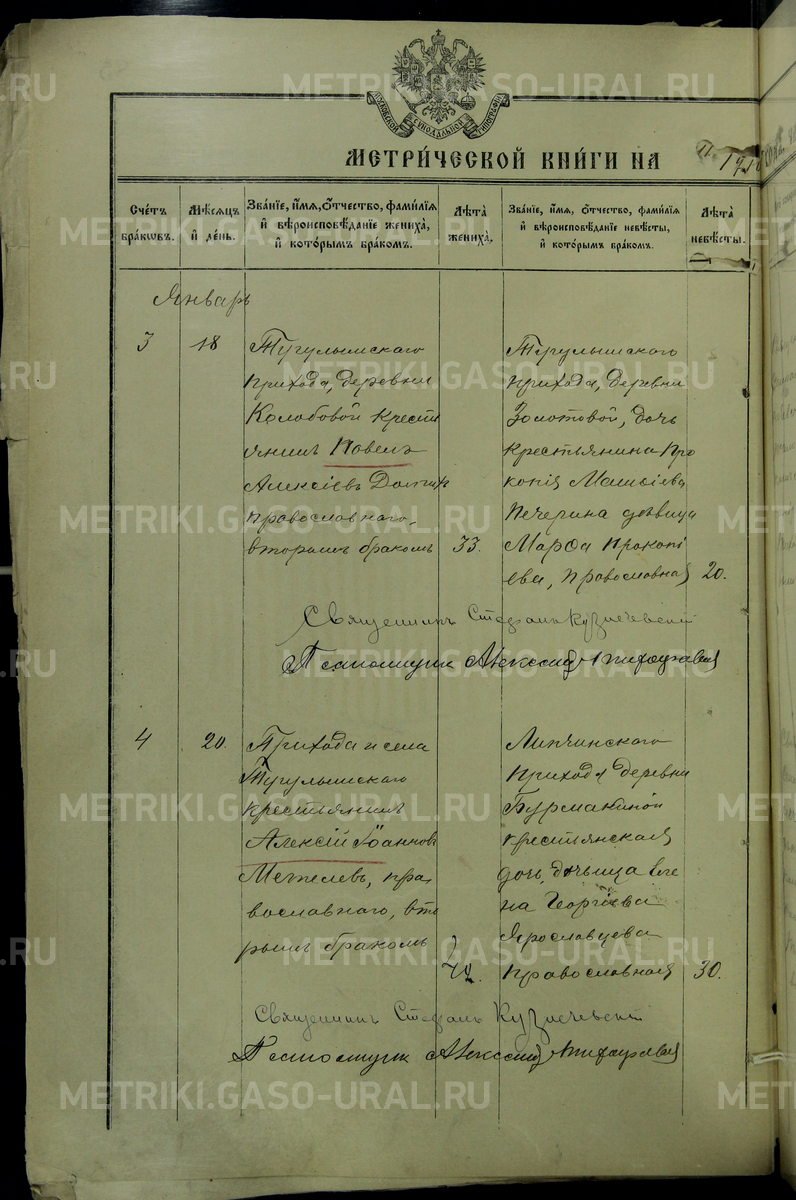 МЕТРИ́ЧЕСКОЙ КНИ́ГИ НА
Сче́тъ бра́ковъ.
Мѣ́сяцъ и де́нь.
Зва́нїе, и́мя, о́тчество, фами́лїя и вѣроисповѣ́данїе жениха́, и кото́рымъ бра́комъ.
Лѣта̀ жениха̀.
Зва́нїе, и́мя, о́тчество, фами́лїя и вѣроисповѣ́данїе невѣ́сты, и кото́рымъ бра́комъ.
Лѣта̀ невѣ́сты.
Январь
3
18
Тугулымскаго
прихода, деревни
Колобовой кресть
янинъ Павелъ
Алексіевъ
православнаго,
вторымъ бракомъ
33.
Тугулымскаго
прихода, деревни
Золотовой, дочь
крестьянина Про
копія
Печеркина дѣвица
Марѳа Прокопі
ева, православная
20.
Священникъ Стефанъ
Псаломщик Алексий
4
20.
Прихода и села
Тугулымскаго
крестьянинъ
Алексій Іоанновъ
Метелевъ, пра
вославнаго, вто
рымъ бракомъ
42.
Липчинскаго
прихода деревни
Бурмакиной
крестьянская
дочь, дѣвица Еле
на Георгіева
Ярославцева
православная
30.
Священникъ Стефанъ
Псаломщик Алексий
METRIKI.GASO-URAL.RU